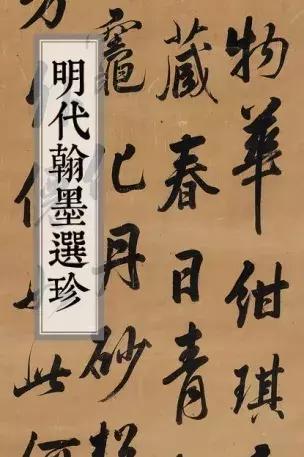 明代翰墨選珍
物華紺琪
藏春日青
竈化丹砂
此何